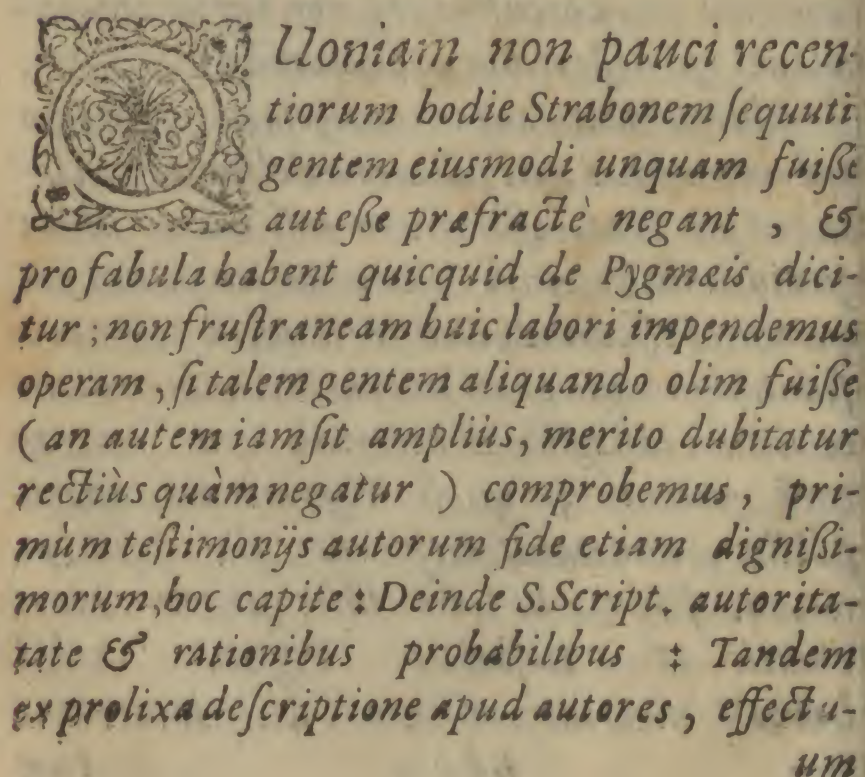 QUoniam non pauci recen-
tiorum hodie Strabonem ſequuti
gentem eiusmodi unquam fuiſſe
aut eſſe præfractè negant , &
pro fabula habent quicquid de Pygmæis dici-
tur ; non fruſtraneam huic labori impendemus
operam , ſi talem gentem aliquando olim fuiſſe
( an autem iam ſit ampliùs, merito dubitatur
rectiùs quàm negatur ) comprobemus , pri-
mùm teſtimonijs autorum fide etiam digniſſi-
morum, hoc capite : Deinde S. Script. autorita-
tate & rationibus probabilibus : Tandem
ex prolixa deſcriptione apud autores , effectu-
um